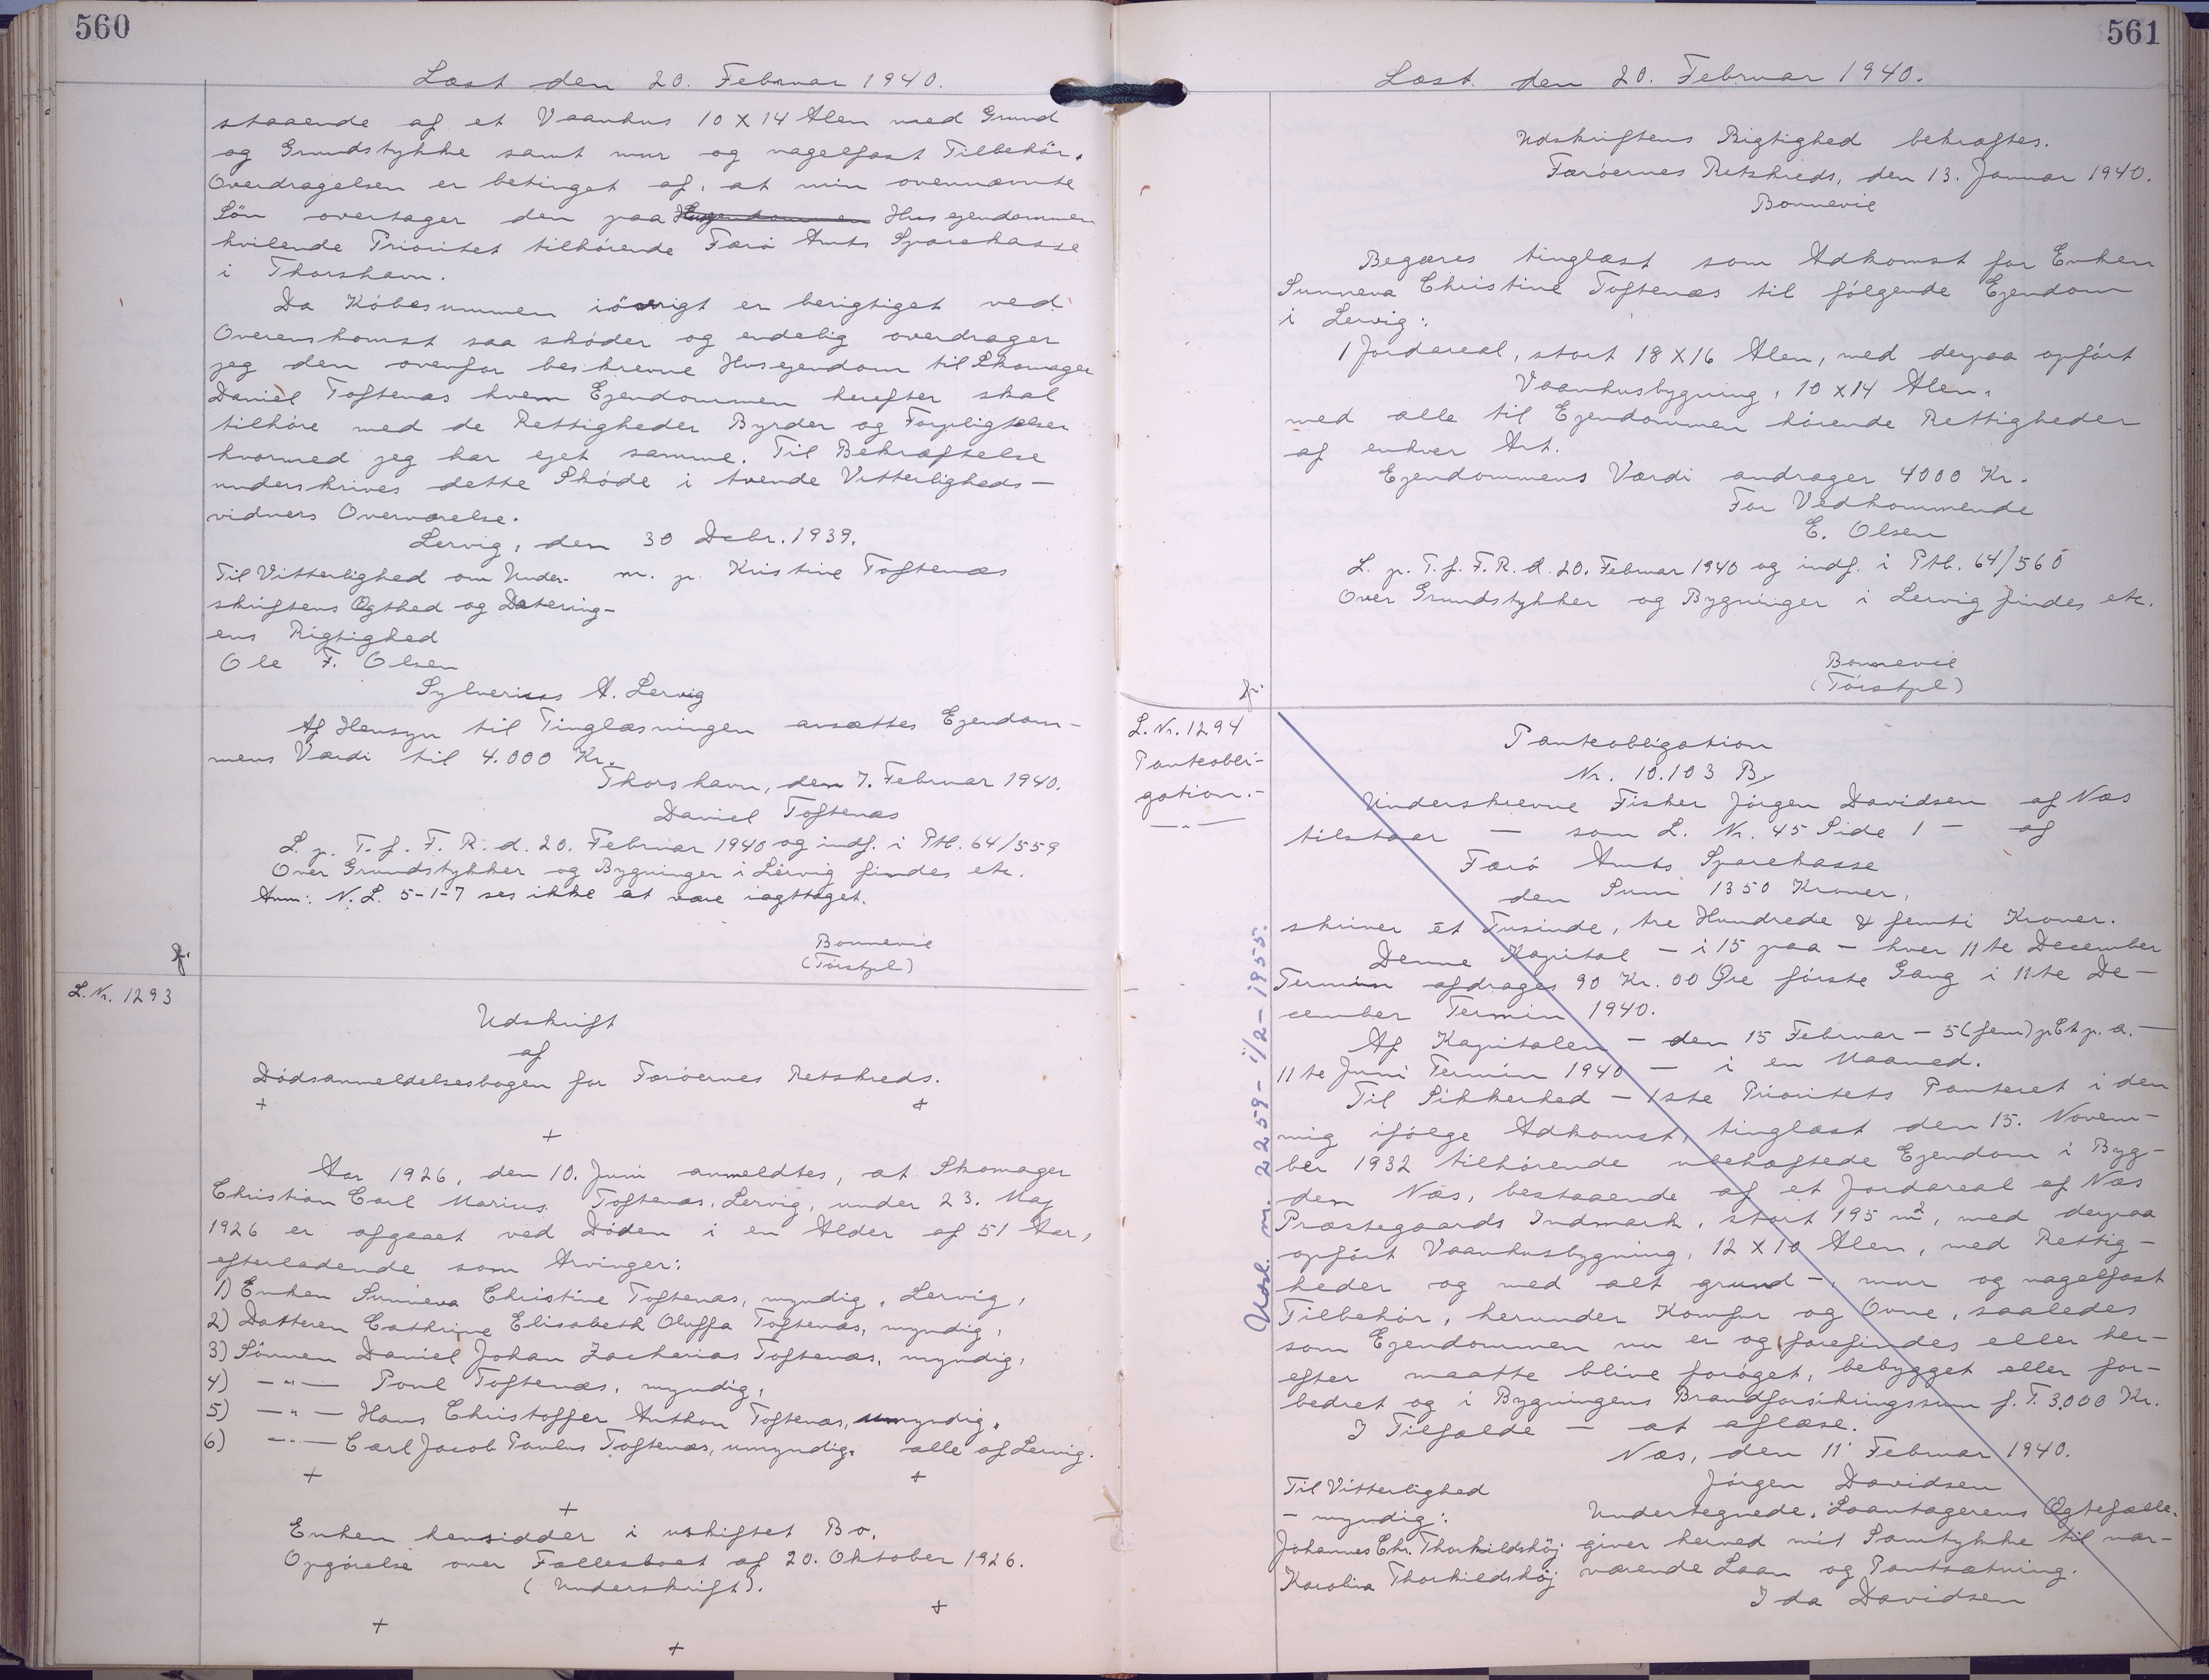 560
Læst den 20. Februar 1940.
staaende af et Vaanhus 10 X 14 Alen med Grund
og Grundstykke samt mur og nagelfast Tilbehör.
Overdragelsen er betinget af, at min ovennævnte
Sön overtager den paa Husejendommen Husejendommen
hvilende Prioritet tilhörende Færö Amts Sparekasse
i Thorshavn.
Da Köbesummen iövrigt er berigtiget ved
Overenskomst saa sköder og endelig overdrager
jeg den ovenfor beskrevne Husejendom til Skomager
Daniel Toftenæs hvem Ejendommen herefter skal
tilhöre med de Rettigheder Byrder og Forpligtelser
hvormed jeg har ejet samme. Til Bekræftelse
underskrives dette Sköde i tvende Vitterligheds-
vidners Overværelse.
Lervig, den 30 Debr. 1939.
Til Vitterlighed om Under- m. p. Kristine Toftenæs
skriftens Ægthed og Datering-
ens Rigtighed
Ole F. Olsen
Sylverius A. Lervig
Af Hensyn til Tinglæsningen ansættes Ejendom-
mens Værdi til 4.000 Kr.
Thorshavn, den 7. Februar 1940.
Daniel Toftenæs
L. p. T. f. F. R. d. 20. Februar 1940 og indf. i Ptb. 64/559
Over Grundstykker og Bygninger i Lervig findes etc.
Anm: N. L. 5-1-7 ses ikke at være iagttaget.
Bonnevie
(Törstpl)
f.
L. Nr. 1293
Udskrift
af
Dödsanmeldelsesbogen for Færöernes Retskreds.
+ +
+
Aar 1926, den 10. Juni anmeldtes, at Skomager
Christian Carl Marius Toftenæs, Lervig, under 23. Maj
1926 er afgaaet ved Döden i en Alder af 51 Aar,
efterladende som Arvinger:
1) Enken Sunneva Christine Toftenæs, myndig, Lervig,
2) Datteren Cathrine Elisabeth Oluffa Toftenæs, myndig,
3) Sönnen Daniel Johan Zacharias Toftenæs, myndig,
4) —"— Poul Toftenæs, myndig,
5) —"— Hans Christoffer Anthon Toftenæs, umyndig,
6) —"— Carl Jacob Paulus Toftenæs, umyndig, alle af Lervig.
+ +
+
Enken hensidder i uskiftet Bo.
Opgörelse over Fællesboet af 20. Oktober 1926.
(Underskrift).
+ +
+
561
Læst den 20. Februar 1940.
Udskriftens Rigtighed bekræftes.
Færöernes Retskreds, den 13. Januar 1940.
Bonnevie
Begæres tinglæst som Adkomst for Enken
Sunneva Christine Toftenæs til fölgende Ejendom
i Lervig:
1 Jordareal, stort 18 X 16 Alen, med derpaa opfört
Vaanhusbygning, 10 X 14 Alen,
med alle til Ejendommen hörende Rettigheder
af enhver Art.
Ejendommens Værdi andrager 4000 Kr.
For Vedkommende
E. Olsen
L. p. T. f. F. R. d. 20. Februar 1940 og indf. i Ptb. 64/560
Over Grundstykker og Bygninger i Lervig findes etc.
Bonnevie
(Törstpl)
f.
L. Nr. 1294
Panteobli-
gation.-
—"—
Panteobligation
Nr. 10.103 B.
Underskrevne Fisker Jörgen Davidsen af Næs
tilstaar — som L. Nr. 45 Side 1 — af
Færö Amts Sparekasse
den Sum 1350 Kroner,
skriver ét Tusinde, tre Hundrede & femti Kroner.
Denne Kapital — i 15 paa — hver 11te December
Termin afdrages 90 Kr. 00 Øre förste Gang i 11te De-
cember Termin 1940.
Af Kapitalen — den 15 Februar — 5 (fem) pCt p. a. —
11te Juni Termin 1940 — i en Maaned.
Til Sikkerhed — 1ste Prioritets Panteret i den
mig ifölge Adkomst, tinglæst den 15. Novem-
ber 1932 tilhörende ubehæftede Ejendom i Byg-
den Næs, bestaaende af et Jordareal af Næs
Præstegaards Indmark, stort 195 m², med derpaa
opfört Vaanhusbygning, 12 X 10 Alen, med Rettig-
heder og med alt grund-, mur og nagelfast
Tilbehör, herunder Komfur og Ovne, saaledes
som Ejendommen nu er og forefindes eller her-
efter maatte blive foröget, bebygget eller for-
bedret og i Bygningens Brandforsikringssum f. T. 3.000 Kr.
I Tilfælde — at aflæse.
Næs, den 11 Februar 1940.
Til Vitterlighed Jörgen Davidsen
- myndig: Undertegnede, Laantagerens Ægtefælle,
Johannes Chr. Thorkildshöj giver herved mit Samtykke til nær-
Karolina Thorkildshöj værende Laan og Pantsætning.
Ida Davidsen
Udsl. nr. 2259 - 1/2 - 1955.